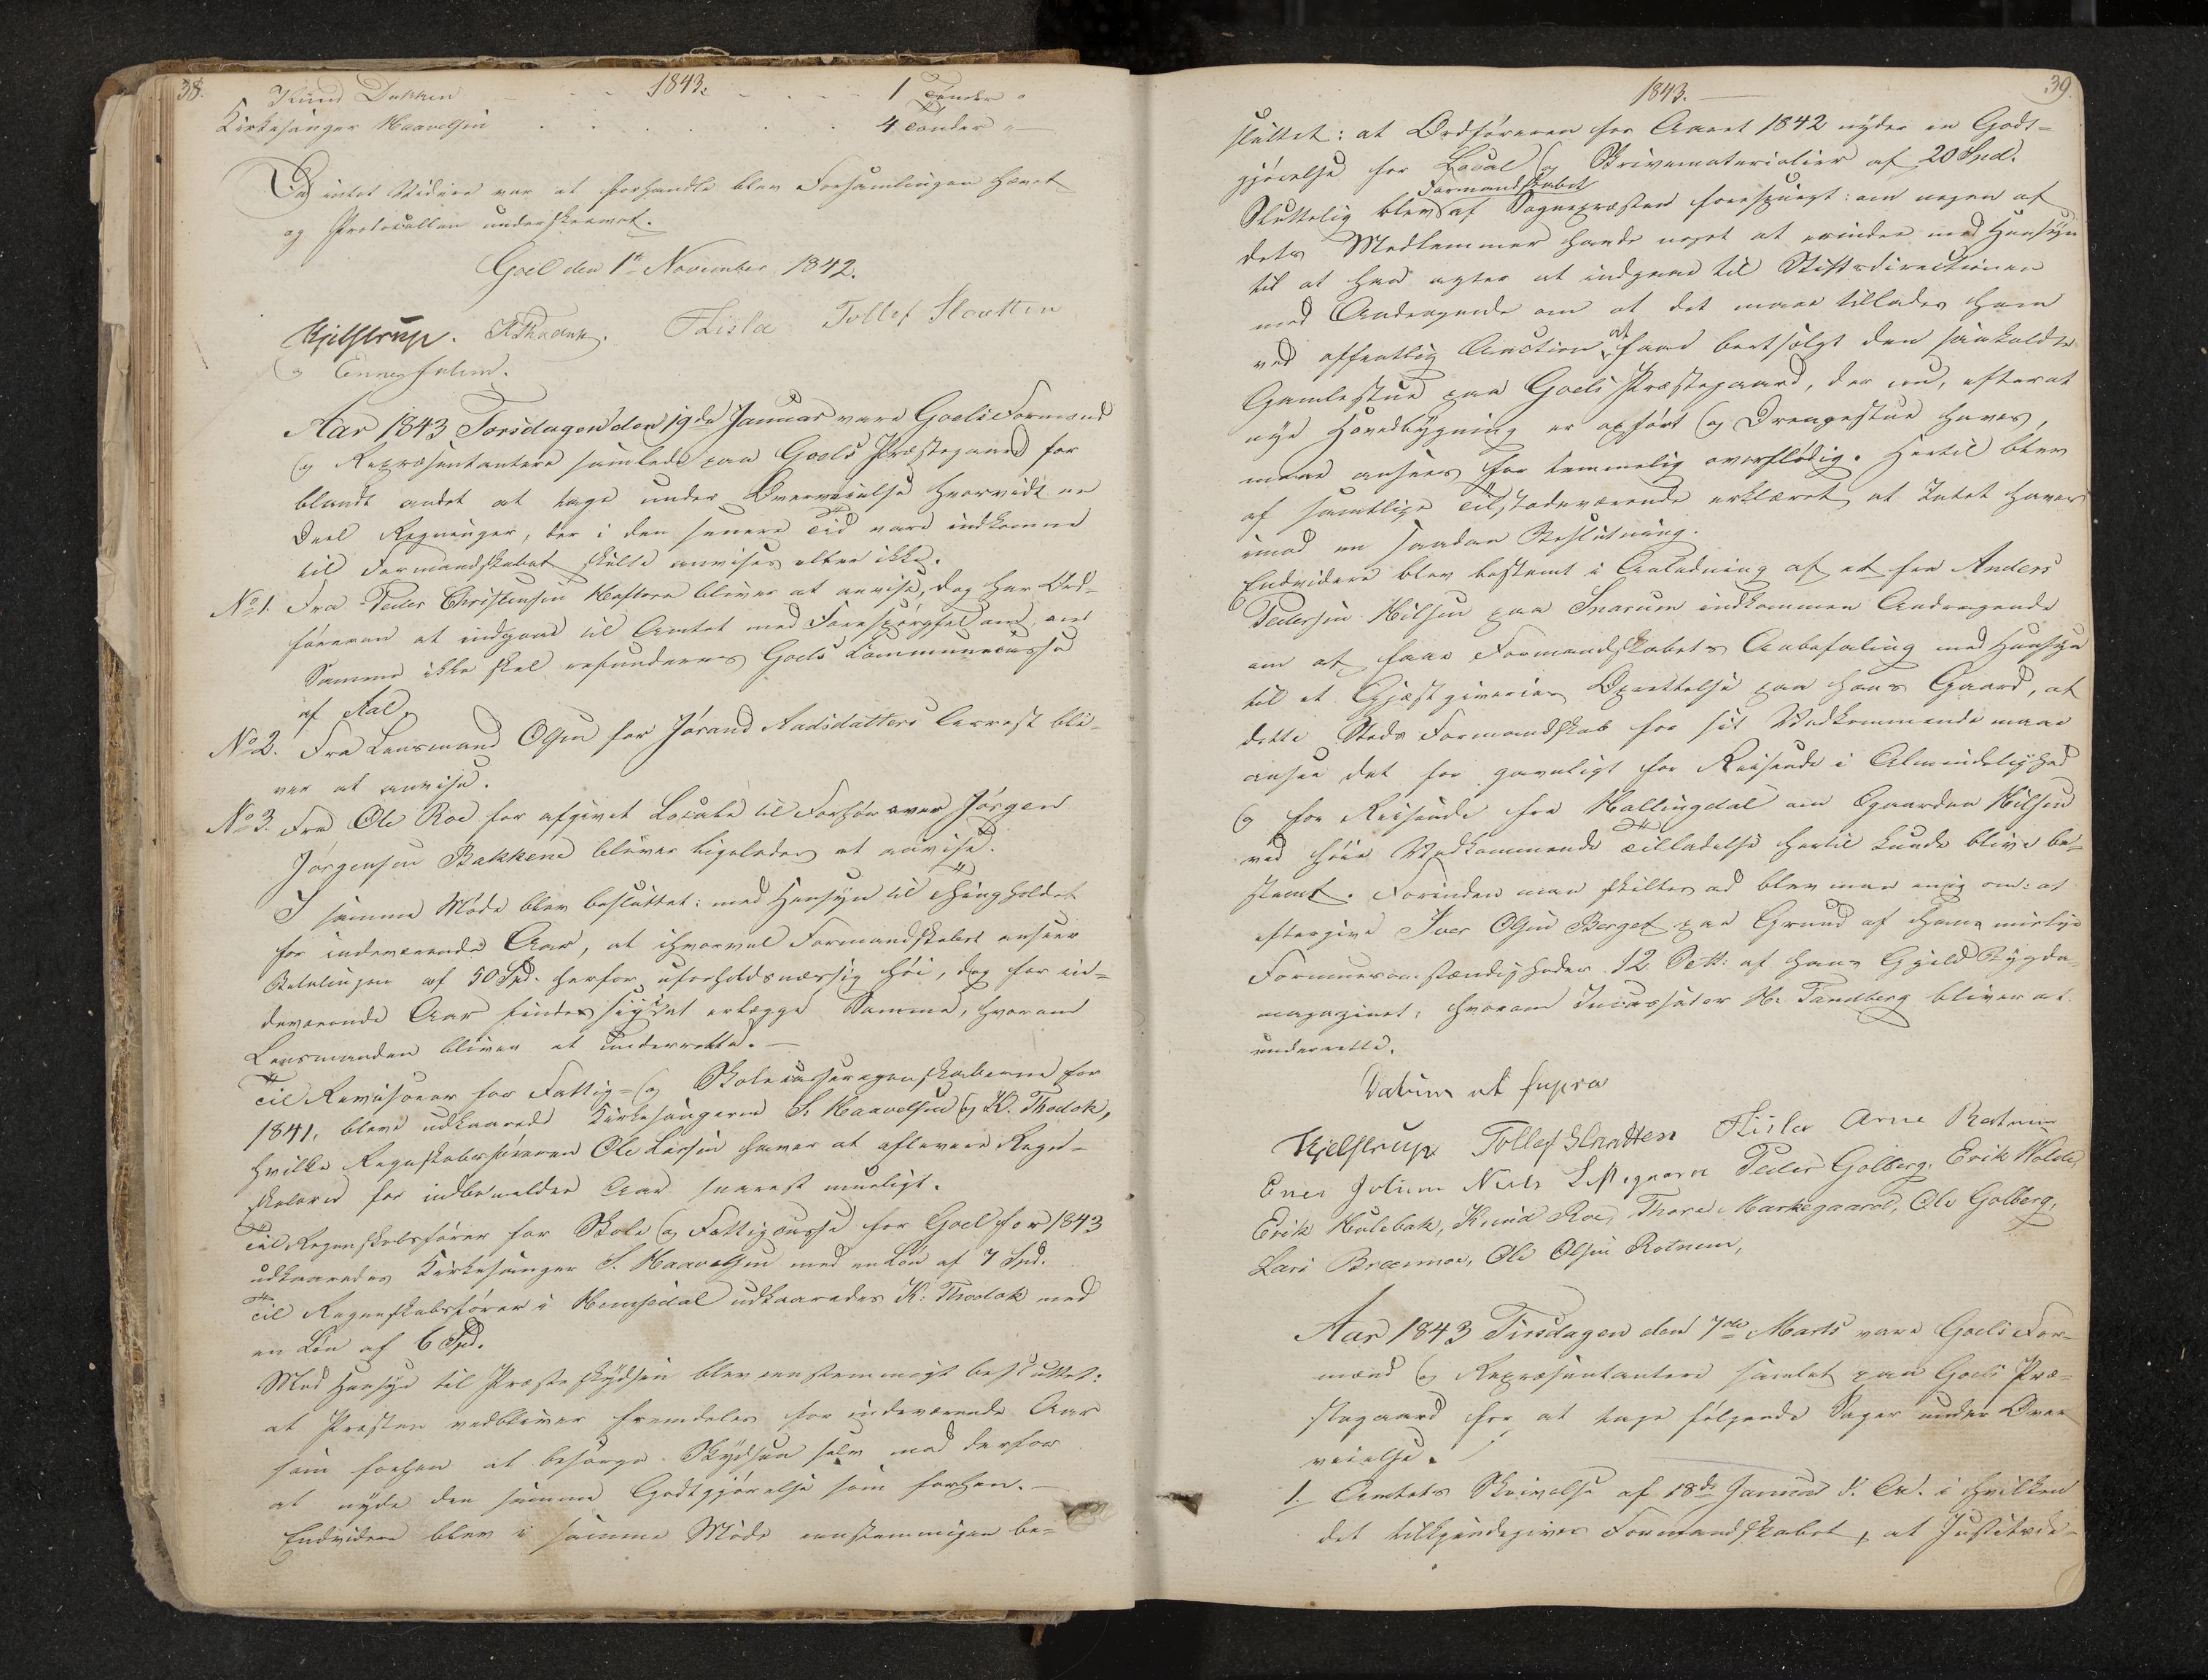 38.
1843.
Knud Dokken - - - - - - 1 Tønder "
Kirkesanger Haavelsen . . . . . . 4 Tønder "
Da intet Videre var at forhandle blev Forsamlingen hævet
og Protocollen underskrevet.
Goel den 1ste November 1842.
Kjelstrup. Tisla Tollef Slaatten
Aar 1843 Torsdagen den 19de Januar vare Goels Formænd
og Repræsentantere samlede paa Goels Præstegaard for
blandt andet at tage under Overveielse hvorvidt en
Deel Regninger, der i den senere Tid vare indkomne
til Formandskabet skulle anvises eller ikke.
No 1. Fra Peder Christensen bliver at anvise, dog har Ord-
føreren at indgaae til Amtet med Forespørgsel om, om
Samme ikke skal refunderes Goels Communecasse
af Aal.
No 2. Fra Lensmand Olsen for Jørand Aadsdatters Arrest bli-
ver at anvise.
No 3. Fra Ole Roe for afgivet Locale til Forhør over Jørgen
Jørgensen Bakkene bliver ligeledes at anvise.
I samme Møde blev besluttet: med Hensyn til Thingholdet
for indeværende Aar, at ihvorvel Formandskabet anseer
Betalingen af 50 Spd. herfor uforholdsmæssig høi, dog for in-
deværende Aar finder sig i at erlægge Samme, hvorom
Lensmanden bliver at underrette. —
Til Revisorer for Fattig- og Skolecasseregnskaberne for
1841, bleve udkaarede Kirkesangeren S. Haavelsen og K. Thodok,
hvilke Regnskabsføreren Ole Larsen haver at aflevere Regn-
skaberne for indbemeldte Aar snarest mueligt.
Til Regnskabsfører for Skole og Fattigcasse for Goel for 1843
udkaaredes Kirkesanger S. Haavelsen med en Løn af 7 Spd.
Til Regnskabsfører i Hemsedal udkaaredes K. Thodok med
en Løn af 6 Spd.
Med Hensyn til Præsteskydsen blev eenstemmigt besluttet:
at Præsten vedbliver fremdeles for indeværende Aar
som forhen at besørge Skydsen selv mod derfor
at nyde den samme Godtgjørelse som forhen. —
Endvidere blev i samme Møde eenstemmigen be-
39.
1843. —
sluttet: at Ordføreren for Aaret 1842 nyder en Godt-
gjørelse for Local og Skrivematerialier af 20 Spd.
Formandskabet
Sluttelig blev af Sognepræsten forespurgt: om nogen af
dets Medlemmer havde noget at erindre med Hensyn
til at han agter at indgaae til Stiftsdirectionen
med Andragende om at det maae tillades ham
ved offentlig Auction at faae bortsolgt den saakaldte
Gamlestue paa Goels Præstegaard, der nu, efterat
nye Hovedbygning er opført og Drengestue haves,
maae ansees for temmelig overflødig. Hertil blev
af samtlige Tilstedeværende erklæret, at Intet haves
imod en saadan Beslutning.
Endvidere blev bestemt i Anledning af et fra Anders
Pedersen Hilsen paa Snarum indkommen Andragende
om at faae Formandskabets Anbefaling med Hensyn
til et Gjæstgiveries Oprettelse paa hans Gaard, at
dette Steds Formandskab for sit Vedkommende maae
ansee det for gavnligt for Reisende i Almindelighed
og for Reisende fra Hallingdal om Gaarden Hilsen
ved høie Vedkommende Tilladelse hertil kunde blive be-
stemt. Forinden man skiltes ad blev man enig om: at
eftergive Iver Olsen Berget paa Grund af hans mislige
Formuesomstændigheder 12 Sett: af hans Gjeld Bygde-
magazinet, hvorom Incassator H. Sandberg bliver at
underrette.
Datum ut supra
Kjelstrup Tollef Slaatten Tisla Arne Rotnem
Niels Peder Golberg, Erik Wolde,
Erik Hulebak, Knud Roe, Thore Markegaard, Ole Golberg,
Lars Brænmoe, Ole Olsen Rotnem,
Aar 1843 Tirsdagen den 7de Marts vare Goels For-
mænd og Repræsentantere samlet paa Goels Præ-
stegaard for at tage følgende Sager under Over-
veielse.
1. Amtets Skrivelse af 18de Januar d. A. i hvilken
det tilkjendegives Formandskabet, at Justitsde-